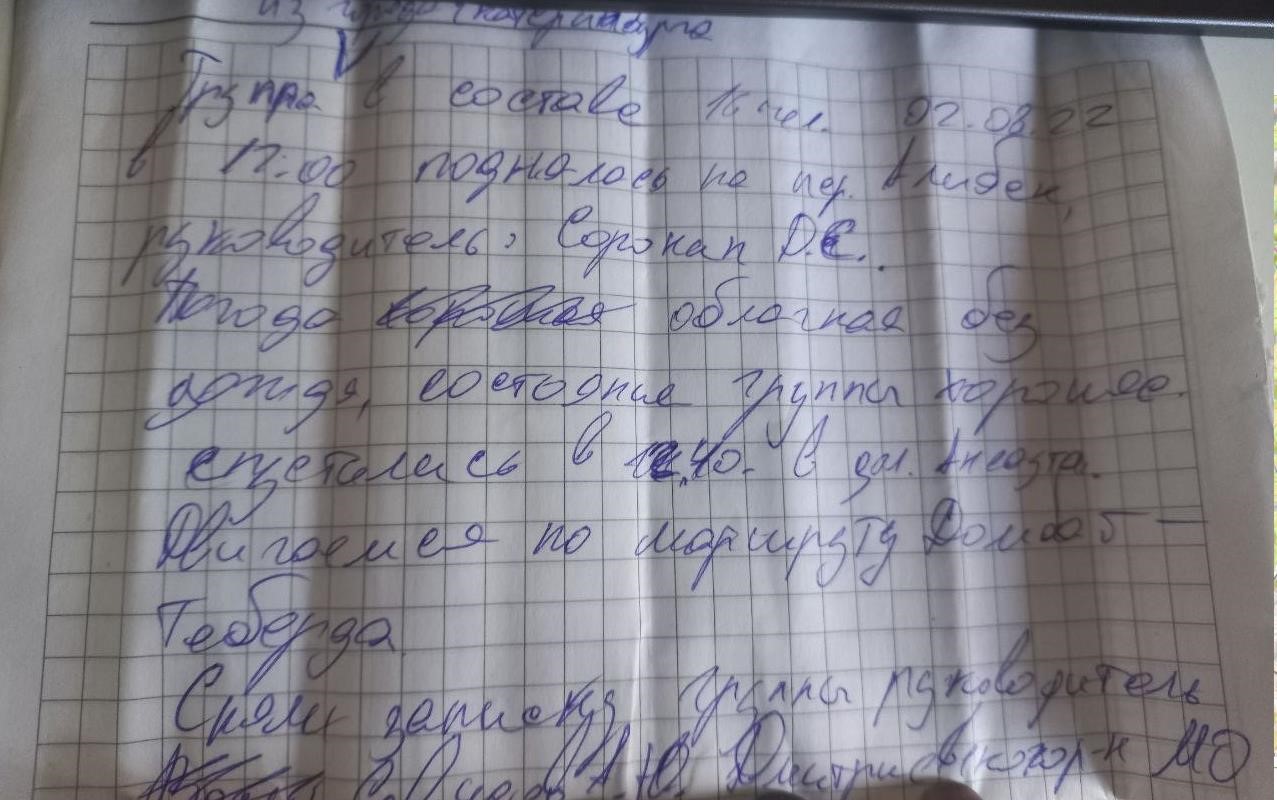 из города Екатеринбурга
Группа в составе чел. 02.08.22
в 12:00 поднялось на пер. Алибек,
руководитель: Сорокап Д.С.
Погода облачная без
дождя, состояние группы хорошее.
спустились в 40. в дол. Аксаута.
Двигаемся по маршруту Домбай —
Теберда
Сняли записку группы руководитель
А.Ю. МО